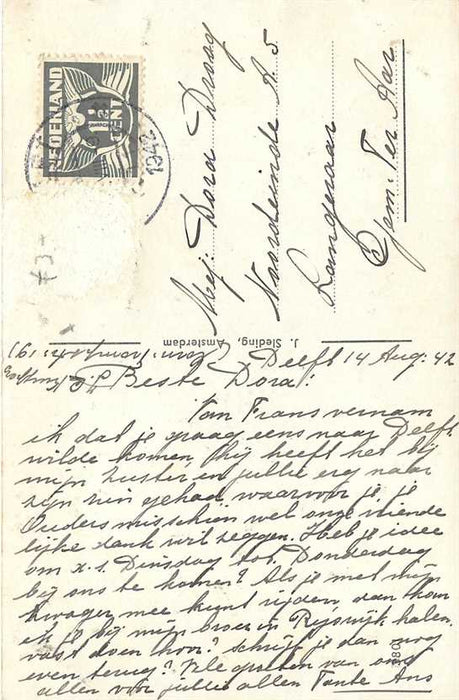 NEDERLAND
1½
CENT
1942
Mej. Dora Draag
Noordeinde A. 5
Langeraar
Gem. Ter Aar
J. Sleding, Amsterdam
Delft 14 Aug: 42
Beste Dora!
Van Frans vernam
ik dat je graag eens naar Delft
wilde komen, hij heeft het bij
mijn zuster en jullie erg naar
zijn zin gehad, waarvoor je je
Ouders misschien wel onze vriende
lijke dank wil zeggen. Heb je idee
om a.s. Dinsdag tot Donderdag
bij ons te komen? Als je met mijn
zwager mee kunt rijden, dan kom
ik je bij mijn broer in Rijswijk halen.
vast doen hoor? Schrijf je dan nog
even terug? Vele groeten van ons
allen voor jullie allen Tante Ans